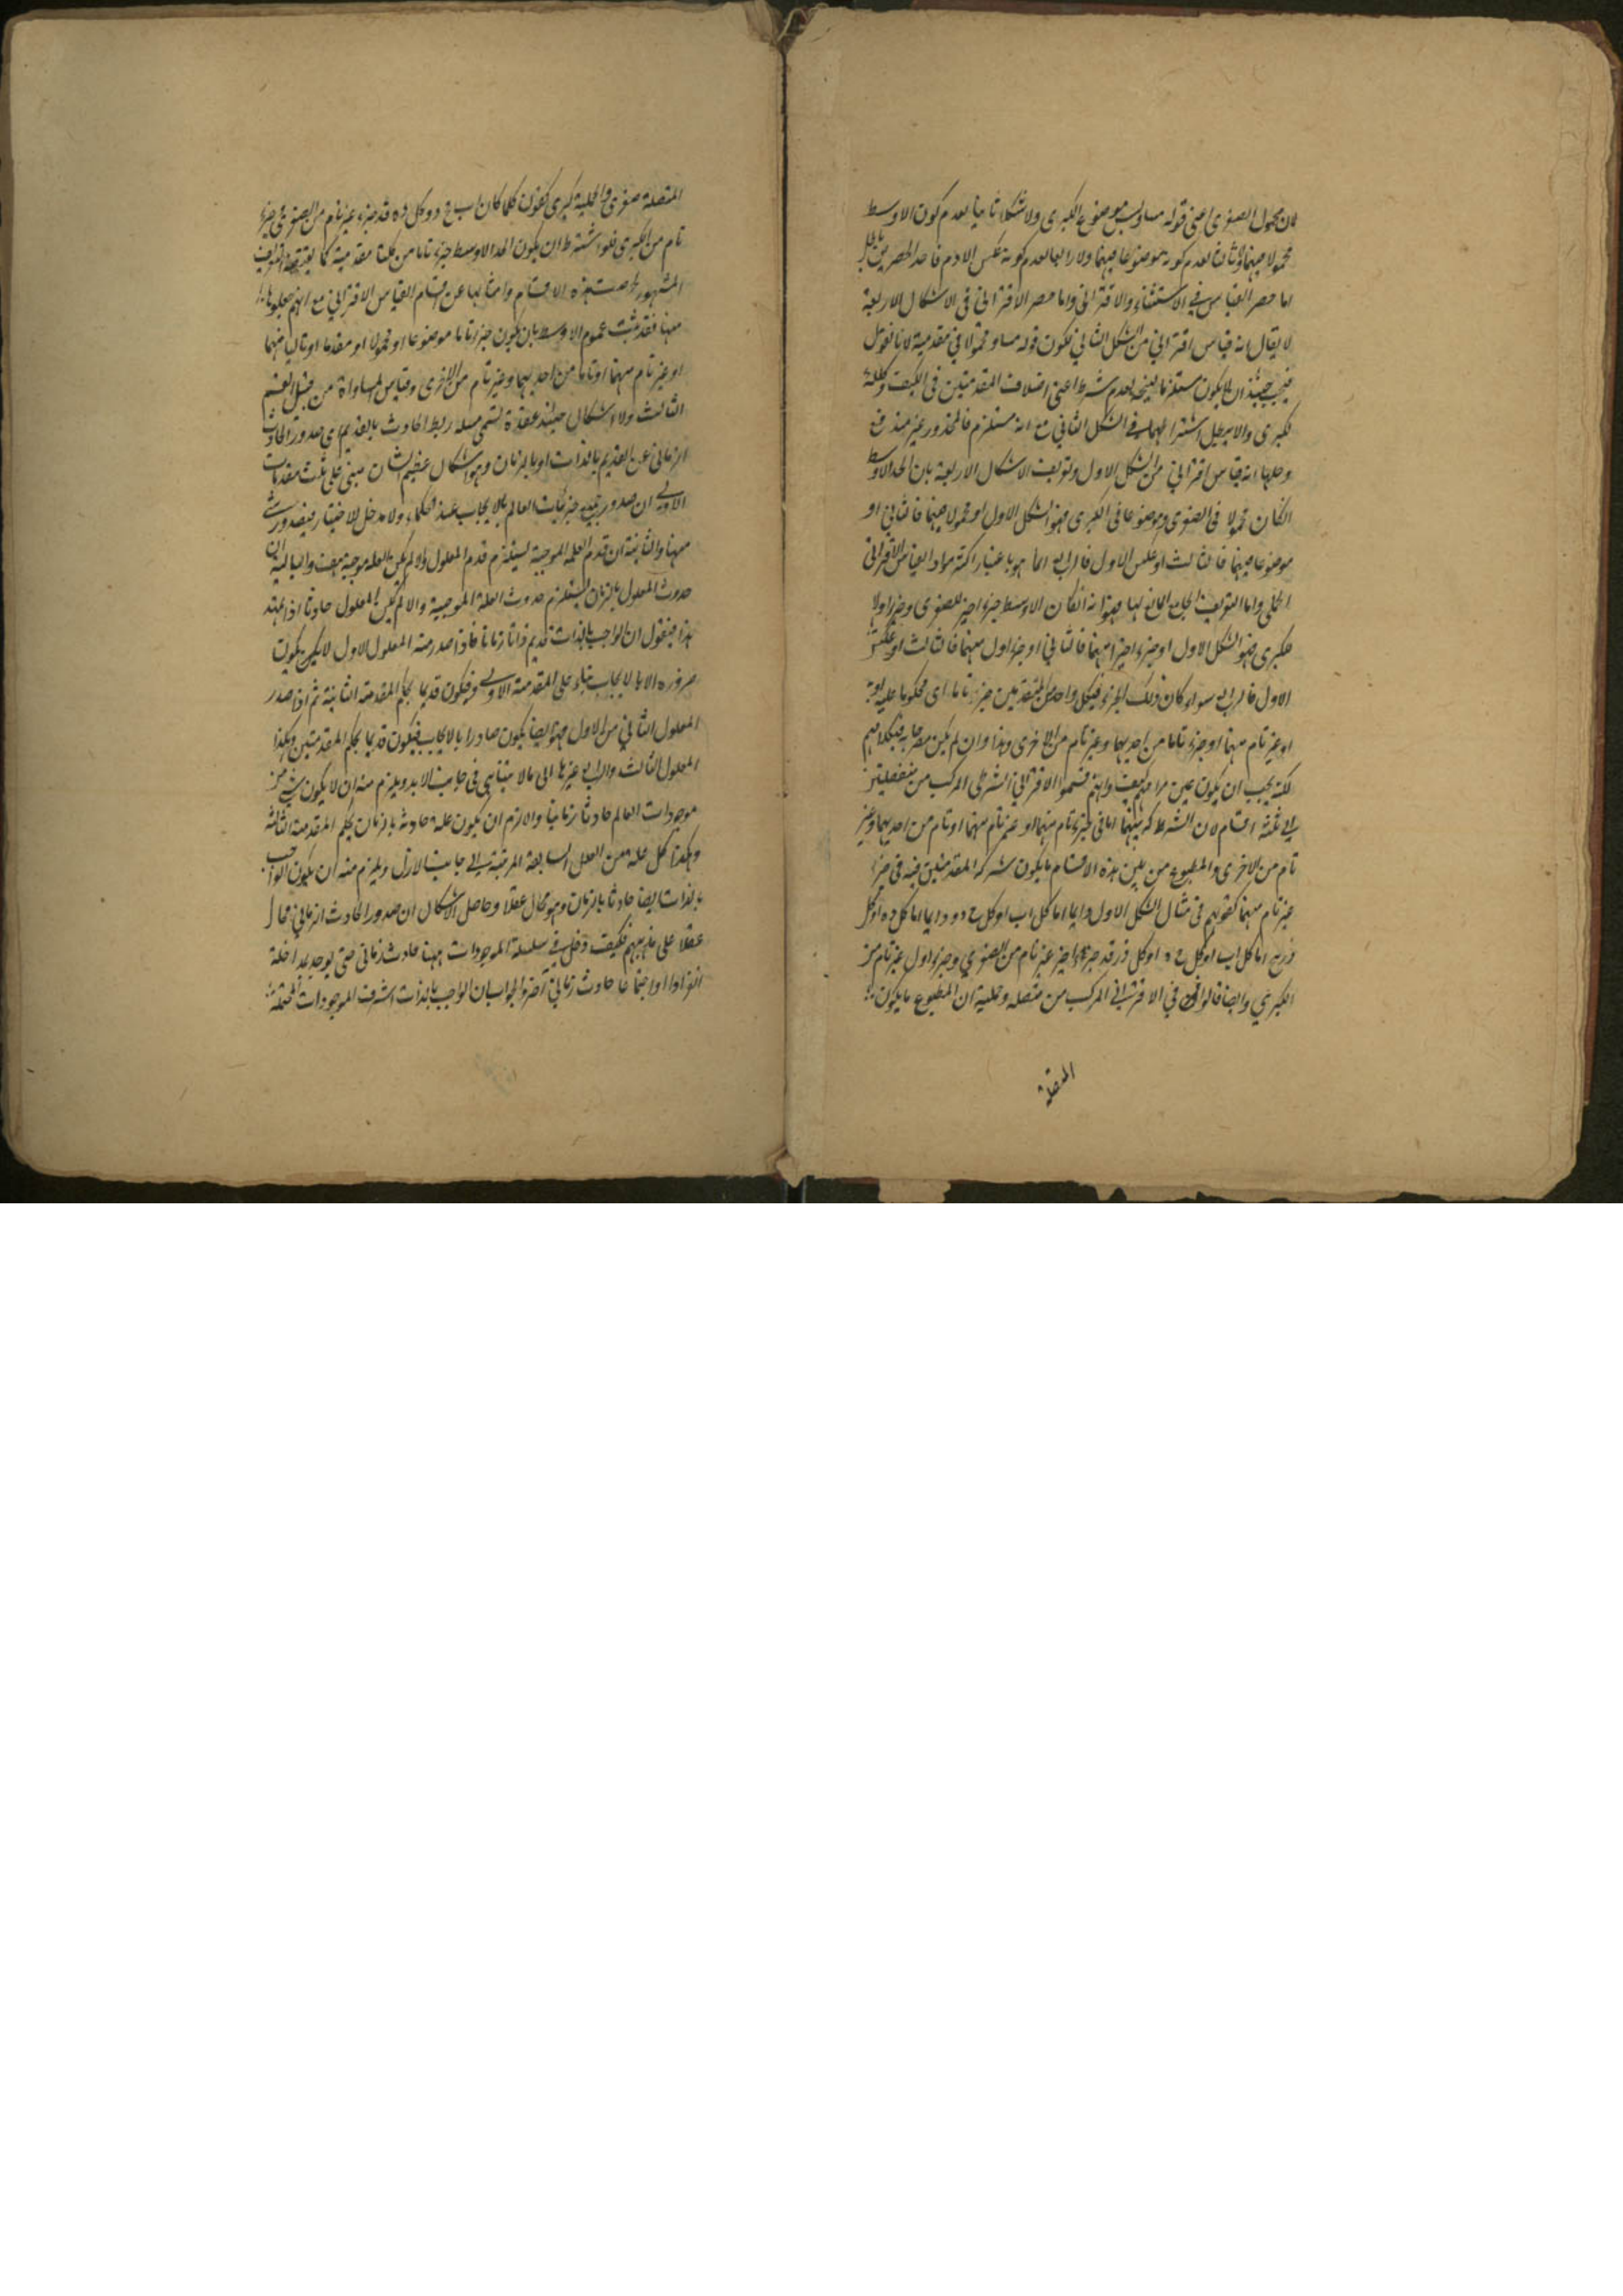 لان محمول الصغرى اعنى قوله مساو ليس موضوع الكبرى ولا شكلا ثانيا لعدم كون الاوسط
محمولا فيهما ولا ثالثا لعدم كونه موضوعا فيهما ولا رابعا لعدم كونه عكس الاول فاحد الحصرين باطل
اما حصر القياس فى الاستثنائى والاقترانى واما حصر الاقترانى فى الاشكال الاربعة
لا يقال انه قياس اقترانى من الشكل الثانى فكون قوله مساو محمولا فى مقدمتيه لانا نقول
فيجب حينئذ ان لا يكون مستلزما لنتيجة لعدم شرط اعنى اختلاف المقدمتين فى الكيف وكلية
كبرى والا يبطل اشتراطهما فى الشكل الثانى مع انه مستلزم فالمحذور غير مندفع
وحلها انه قياس اقترانى من الشكل الاول وتعريف الاشكال الاربعة بان الحد الاوسط
انكان محمولا فى الصغرى وموضوعا فى الكبرى فهو الشكل الاول او محمولا فيهما فالثانى او
موضوعا فيهما فالثالث او عكس الاول فالرابع انما هو باعتبار اكثر مواد القياس الاقترانى
الحملى واما التعريف الجامع المانع لها فهو انه انكان الاوسط جزءا اخيرا للصغرى وجزءا اولا
لكبرى فهو الشكل الاول او جزءا اخيرا منهما فالثانى او جزءا اول منهما فالثالث او عكس
الاول فالرابع سواء كان ذلك الجزء فى كل واحد من المقدمتين جزءا تاما اى محكوما عليه او به
او غير تام منهما او جزءا تاما من احديهما وغير تام من الاخرى وهذا وان لم يكن مصرحا به فى كلامهم
لكنه يجب ان يكون عين مرامهم كيف وانهم قسموا الاقترانى الشرطى المركب من منفصلتين
الى ثلثة اقسام لان الشركة بينهما اما فى جزء تام منهما او غير تام منهما او تام من احديهما وغير
تام من الاخرى والمطبوع من بين هذه الاقسام ما يكون شركة المقدمتين فيه فى جزء
غير تام منهما كقولهم فى مثال الشكل الاول دائما اما كل اب او كل ج د ودائما اما كل د ه او كل
وز ينتج اما كل اب او كل ج ه او كل وز فقد جزءا اخير غير تام من الصغرى وجزءا اول غير تام من
الكبرى وايضا قالوا فى الاقترانى المركب من متصلة وحملية ان المطبوع ما يكون
المتصلة
المتصلة صغرى والحملية كبرى كقولنا كلما كان اب فج د وكل د ه فقد جزء غير تام من الصغرى وجزء
تام من الكبرى فلو اشترط ان يكون الحد الاوسط جزءا تاما من كلتا مقدمتيه كما يقتضيه التعريف
المشهور لخرجت هذه الاقسام وامثالها عن اقسام القياس الاقترانى مع انهم جعلوها
منها فقد ثبت عموم الاوسط بان يكون جزءا تاما موضوعا او محمولا او مقدما او تاليا منهما
او غير تام منهما او تاما من احديهما وغير تام من الاخرى وقياس المساواة من قبيل القسم
الثالث ولا اشكال حينئذ عقدة تسمى مسئلة ربط الحادث بالقديم اى صدور الحادث
الزمانى عن القديم بالذات او بالزمان وهو اشكال عظيم الشان مبنى على ثلث مقدمات
الاولى ان صدور جميع جزئيات العالم بالايجاب عند الحكماء ولا مدخل للاختيار فى صدور شئ
منها والثانية ان قدم العلة الموجبة يستلزم قدم المعلول والا لم تكن العلة موجبة هف والثالثة ان
حدوث المعلول بالزمان يستلزم حدوث العلة الموجبة والا لم يكن المعلول حادثا اذا تمهد
هذا فنقول ان الواجب بالذات قديم ذاتا وزمانا فاذا صدر منه المعلول الاول لا يكون
صدوره الا بالايجاب بناء على المقدمة الاولى فيكون قديما بحكم المقدمة الثانية ثم اذا صدر
المعلول الثانى من الاول فهو ايضا يكون صادرا بالايجاب فيكون قديما بحكم المقدمتين وهكذا
المعلول الثالث والرابع وغيرها الى ما لا يتناهى فى جانب الابد ويلزم منه ان لا يكون شئ من
موجودات العالم حادثا زمانيا والا لزم ان يكون علة حادثة بالزمان بحكم المقدمة الثالثة
وهكذا كل علة من العلل السابقة المرتبة الى جانب الازل ويلزم منه ان يكون الواجب
بالذات ايضا حادثا بالزمان وهو محال عقلا وحاصل الاشكال ان صدور الحادث الزمانى محال
عقلا على مذهبهم فكيف دخل فى سلسلة الموجودات ههنا حادث زمانى حتى يوجد بمداخلة
انفرادا او اجتماعا حادث زمانى آخر والجواب ان الواجب بالذات اشرف الموجودات